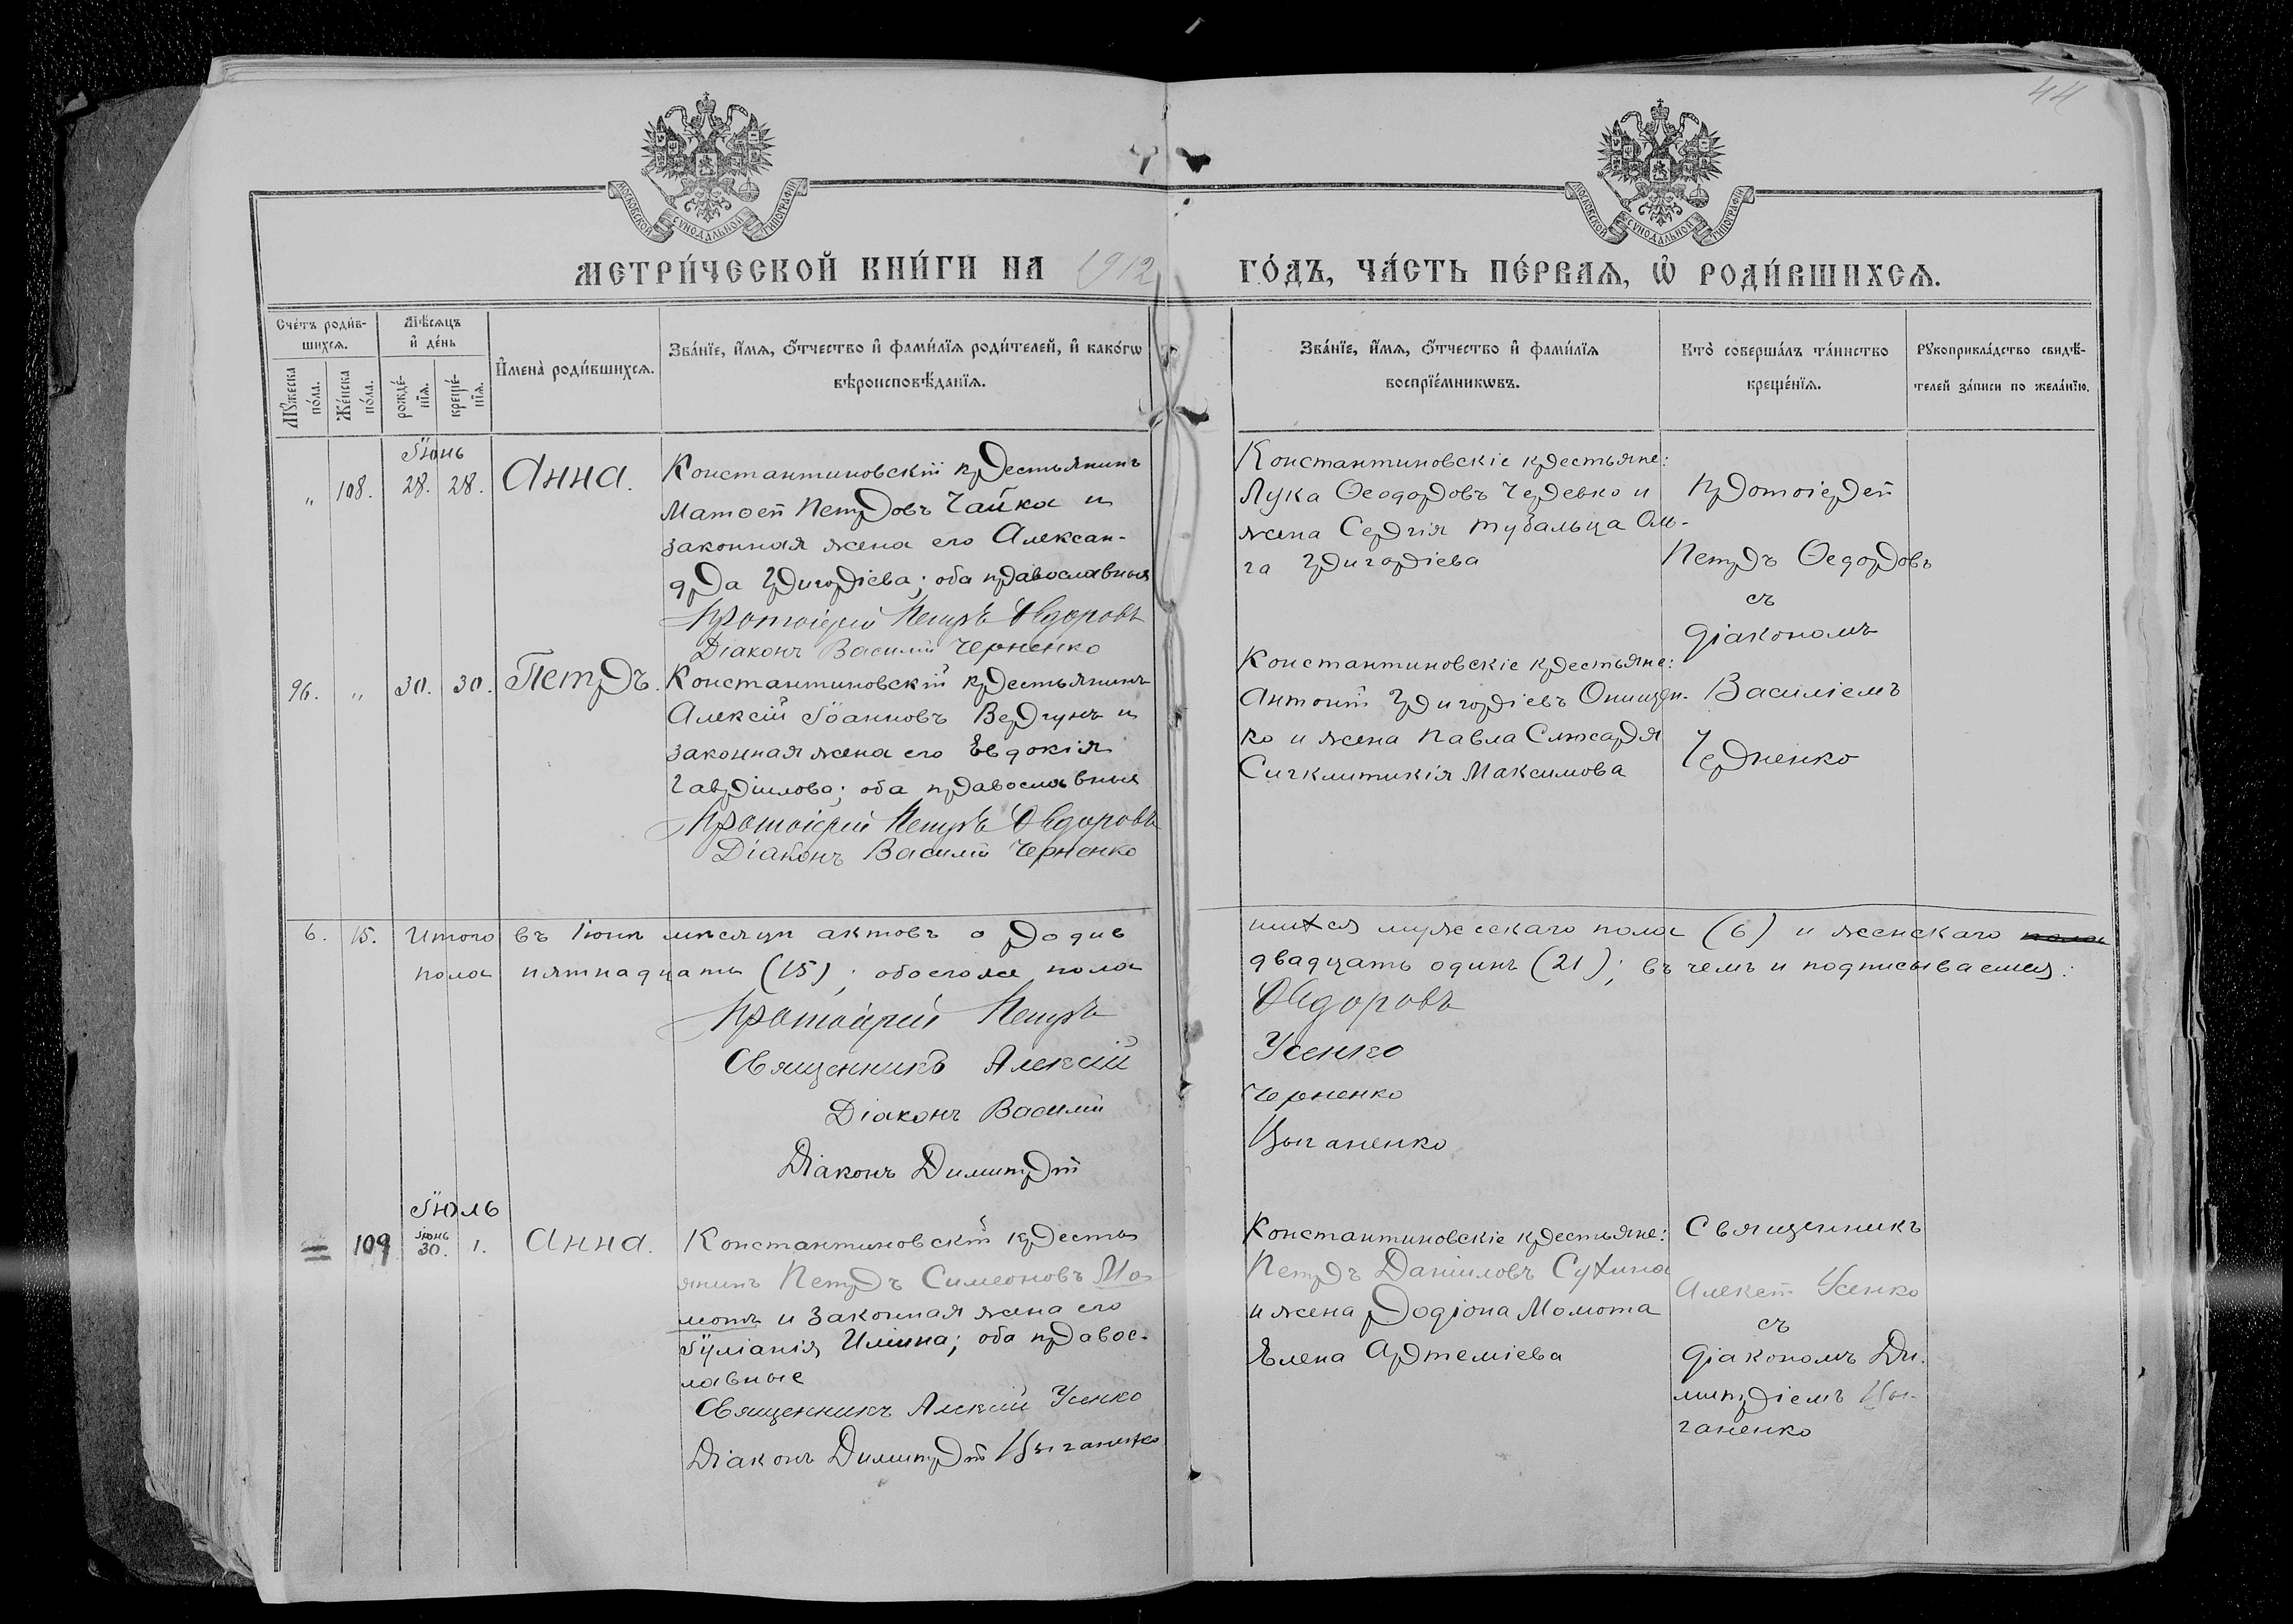 44
МОСКОВСКОЙ СУНОДАЛЬНОЙ ТИПОГРАФІИ
МОСКОВСКОЙ СУНОДАЛЬНОЙ ТИПОГРАФІИ
МЕТРИ́ЧЕСКОЙ КНИ́ГИ НА 1912
ГО́ДЪ, ЧА́СТЬ ПЕ́РВАѦ, Ѡ҆ РОДИ́ВШИХСѦ.
Сче́тъ роди́в-
шихсѧ.
Мꙋ́жеска
по́ла.
Же́нска
по́ла.
Мѣ́сѧцъ
и҆ де́нь
рожде́-
нїѧ.
креще́-
нїѧ.
И҆мена̀ роди́вшихсѧ.
Зва́нїе, и҆́мѧ, ѻ҆́тчество и҆ фами́лїѧ роди́телей, и҆ како́гѡ
вѣроисповѣ́данїѧ.
Зва́нїе, и҆́мѧ, ѻ҆́тчество и҆ фами́лїѧ
воспрїе́мникѡвъ.
Кто̀ соверша́лъ та́инство
креще́нїѧ.
Рꙋкоприкла́дство свидѣ́-
телей за́писи по жела́нїю.
Іюнь
" 108. 28. 28. Анна.
Константиновскій крестьянинъ
Матѳей Петровъ Чайка и
законная жена его Алексан-
дра Григоріева; оба православныя
Протоіерей Петръ Ѳедоровъ
Діаконъ Василій Черненко
Константиновскіе крестьяне:
Лука Ѳеодоровъ Черевко и
жена Сергія Губальца Оль-
га Григоріева
Протоіерей
Петръ Ѳедоровъ
съ
діакономъ
Василіемъ
Черненко
96. " 30. 30. Петръ.
Константиновскій крестьянинъ
Алексій Іоанновъ Вергунъ и
законная жена его Евдокія
Гавріилова; оба православныя
Протоіерей Петръ Ѳедоровъ
Діаконъ Василій Черненко
Константиновскіе крестьяне:
Антоній Григоріевъ Онищен-
ко и жена Павла Слюсаря
Сигклитикія Максимова
6. 15. Итого въ Іюнѣ мѣсяцѣ актовъ о родив
шихся мужескаго пола (6) и женскаго пола
пола пятнадцать (15); обоегоже пола
двадцать одинъ (21); въ чемъ и подписываемся:
Протоіерей Петръ Ѳедоровъ
Священникъ Алексій Усенко
Діаконъ Василій Черненко
Діаконъ Димитрій Цыганенко
Іюль
= 109 Іюнь 30. 1. Анна.
Константиновскій кресть
янинъ Петръ Симеоновъ Мо
мотъ и законная жена его
Іуліанія Ильина; оба правос-
лавные
Священникъ Алексій Усенко
Діаконъ Димитрій Цыганенко
Константиновскіе крестьяне:
Петръ Даніиловъ Сухина
и жена Родіона Момота
Елена Артеміева
Священникъ
Алексій Усенко
съ
діакономъ Ди-
митріемъ Цы-
ганенко